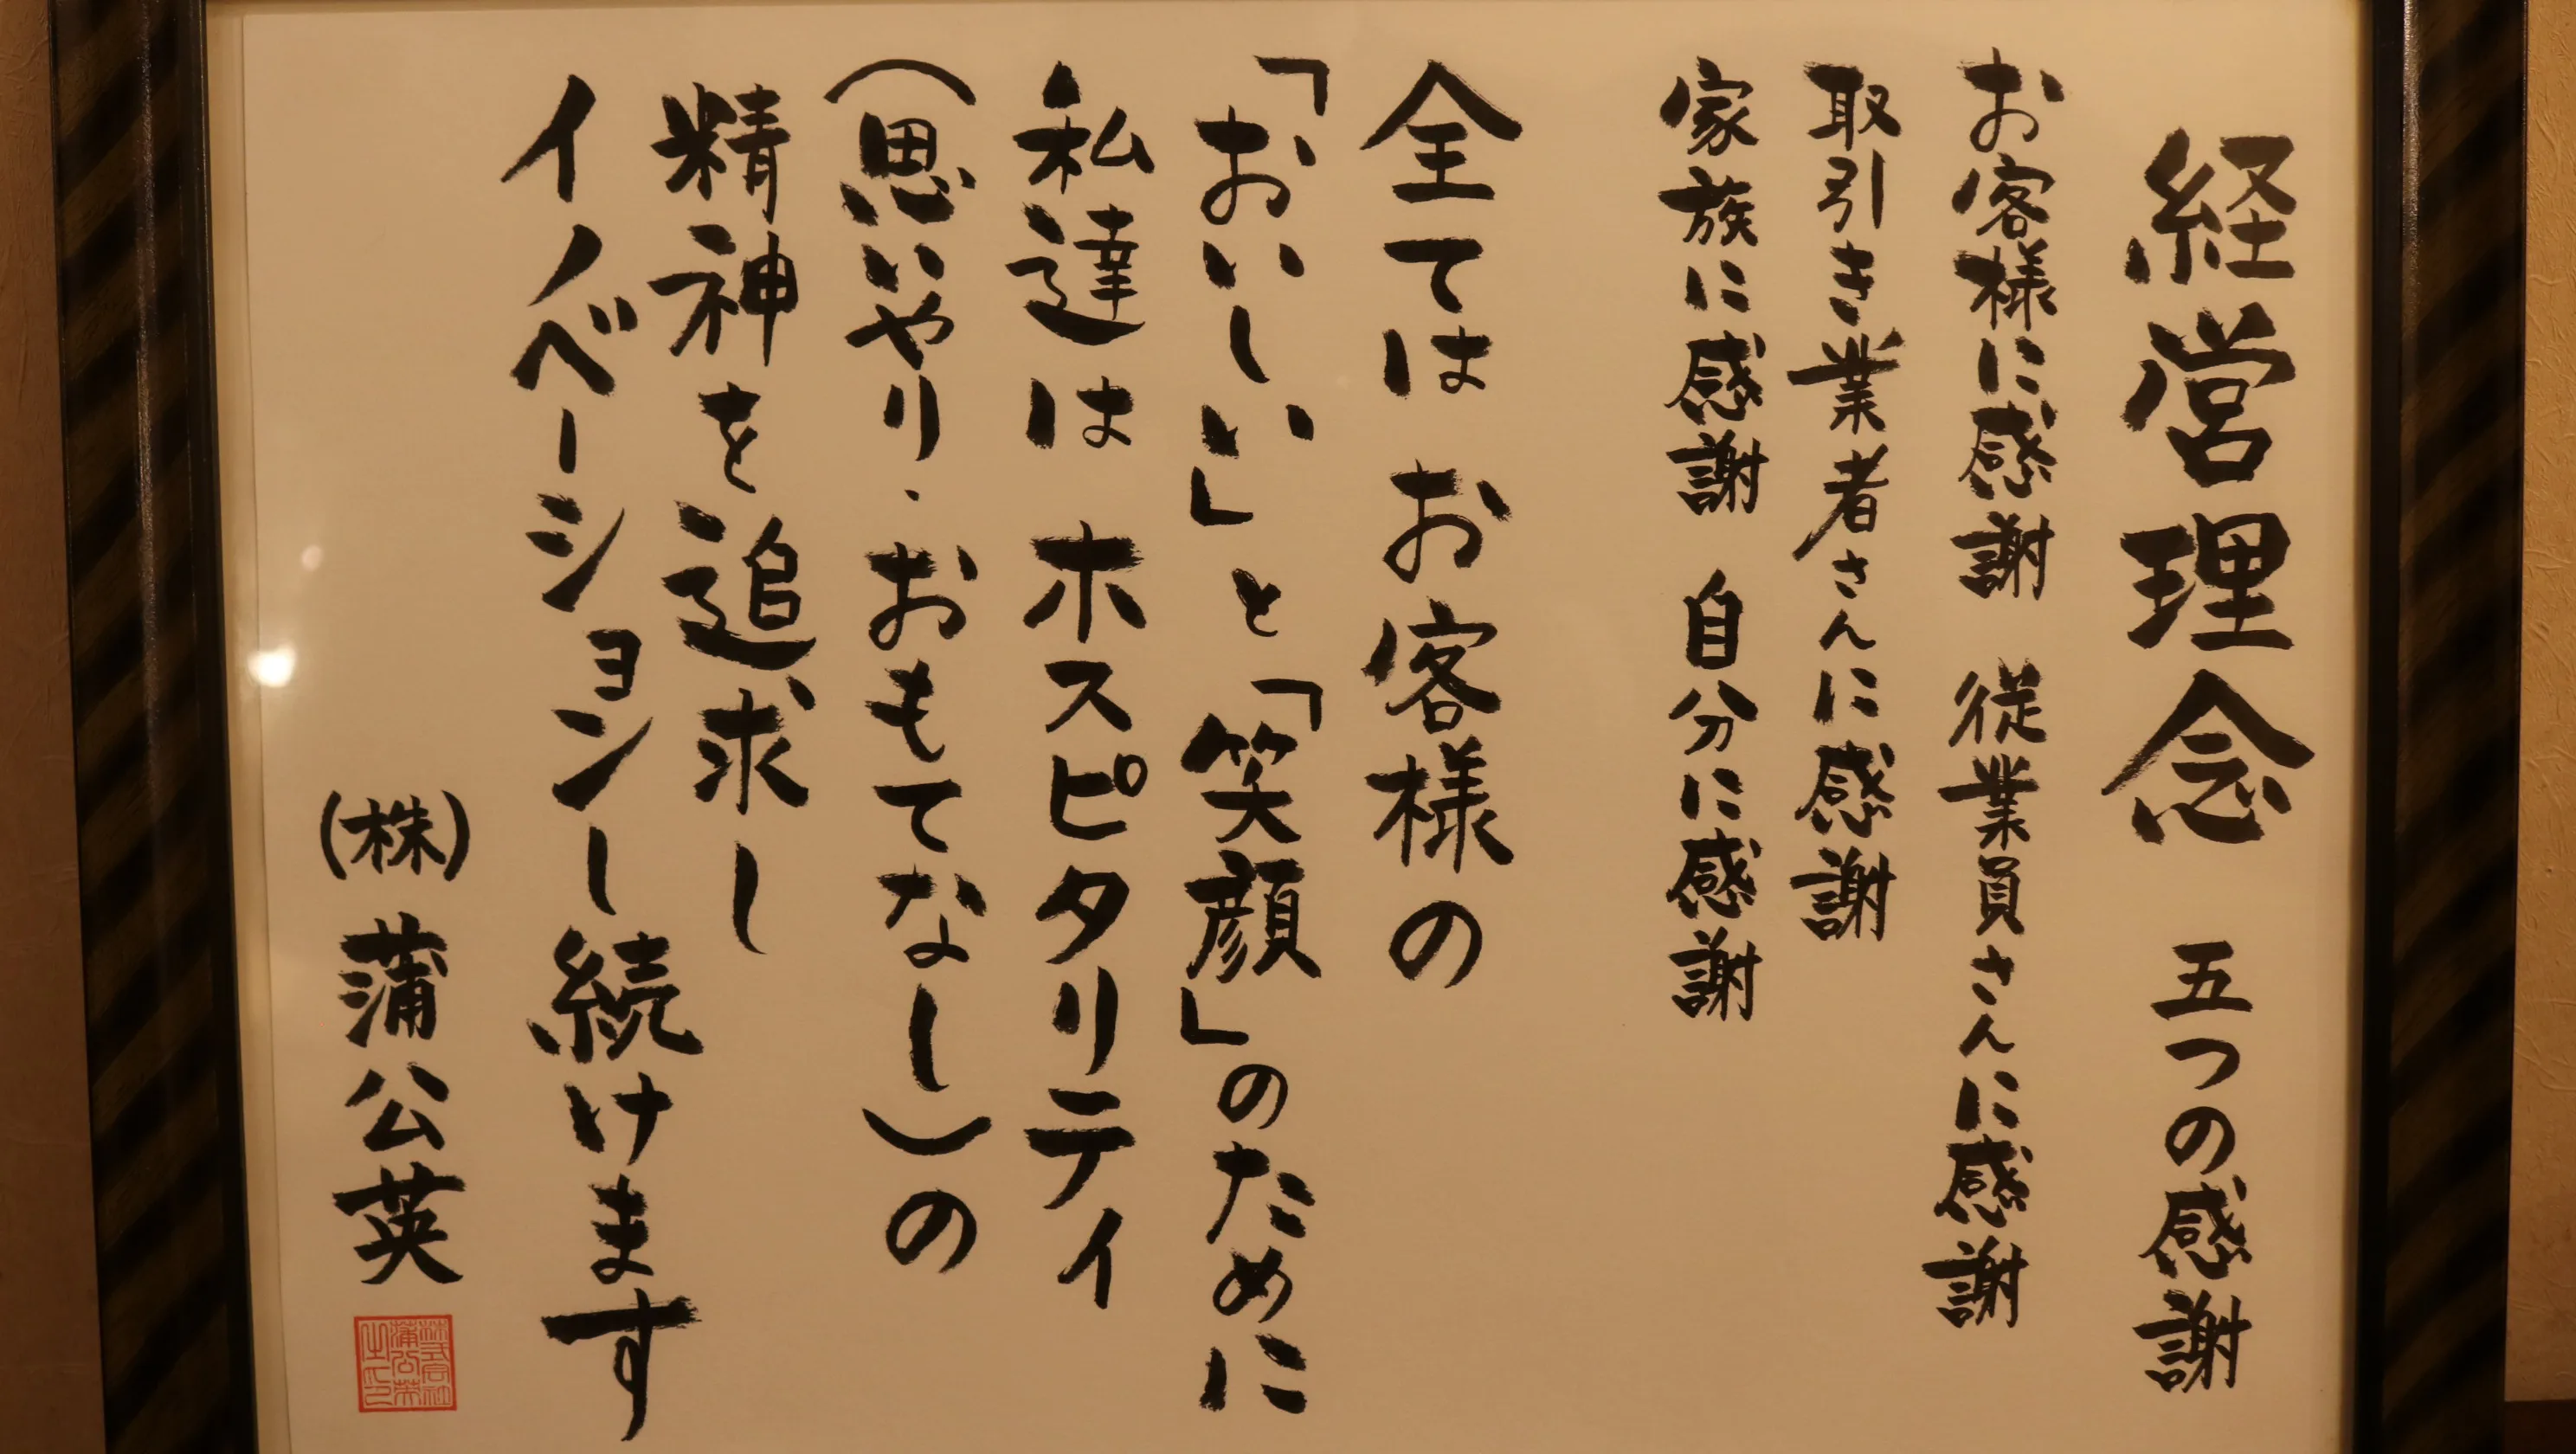 経営理念 五つの感謝
お客様に感謝 従業員さんに感謝
取引き業者さんに感謝
家族に感謝 自分に感謝
全ては お客様の
「おいしい」と「笑顔」のために
私達は ホスピタリティ
(思いやり・おもてなし)の
精神を追求し
イノベーションし続けます
(株) 蒲公英
株式会社
蒲公英
之印